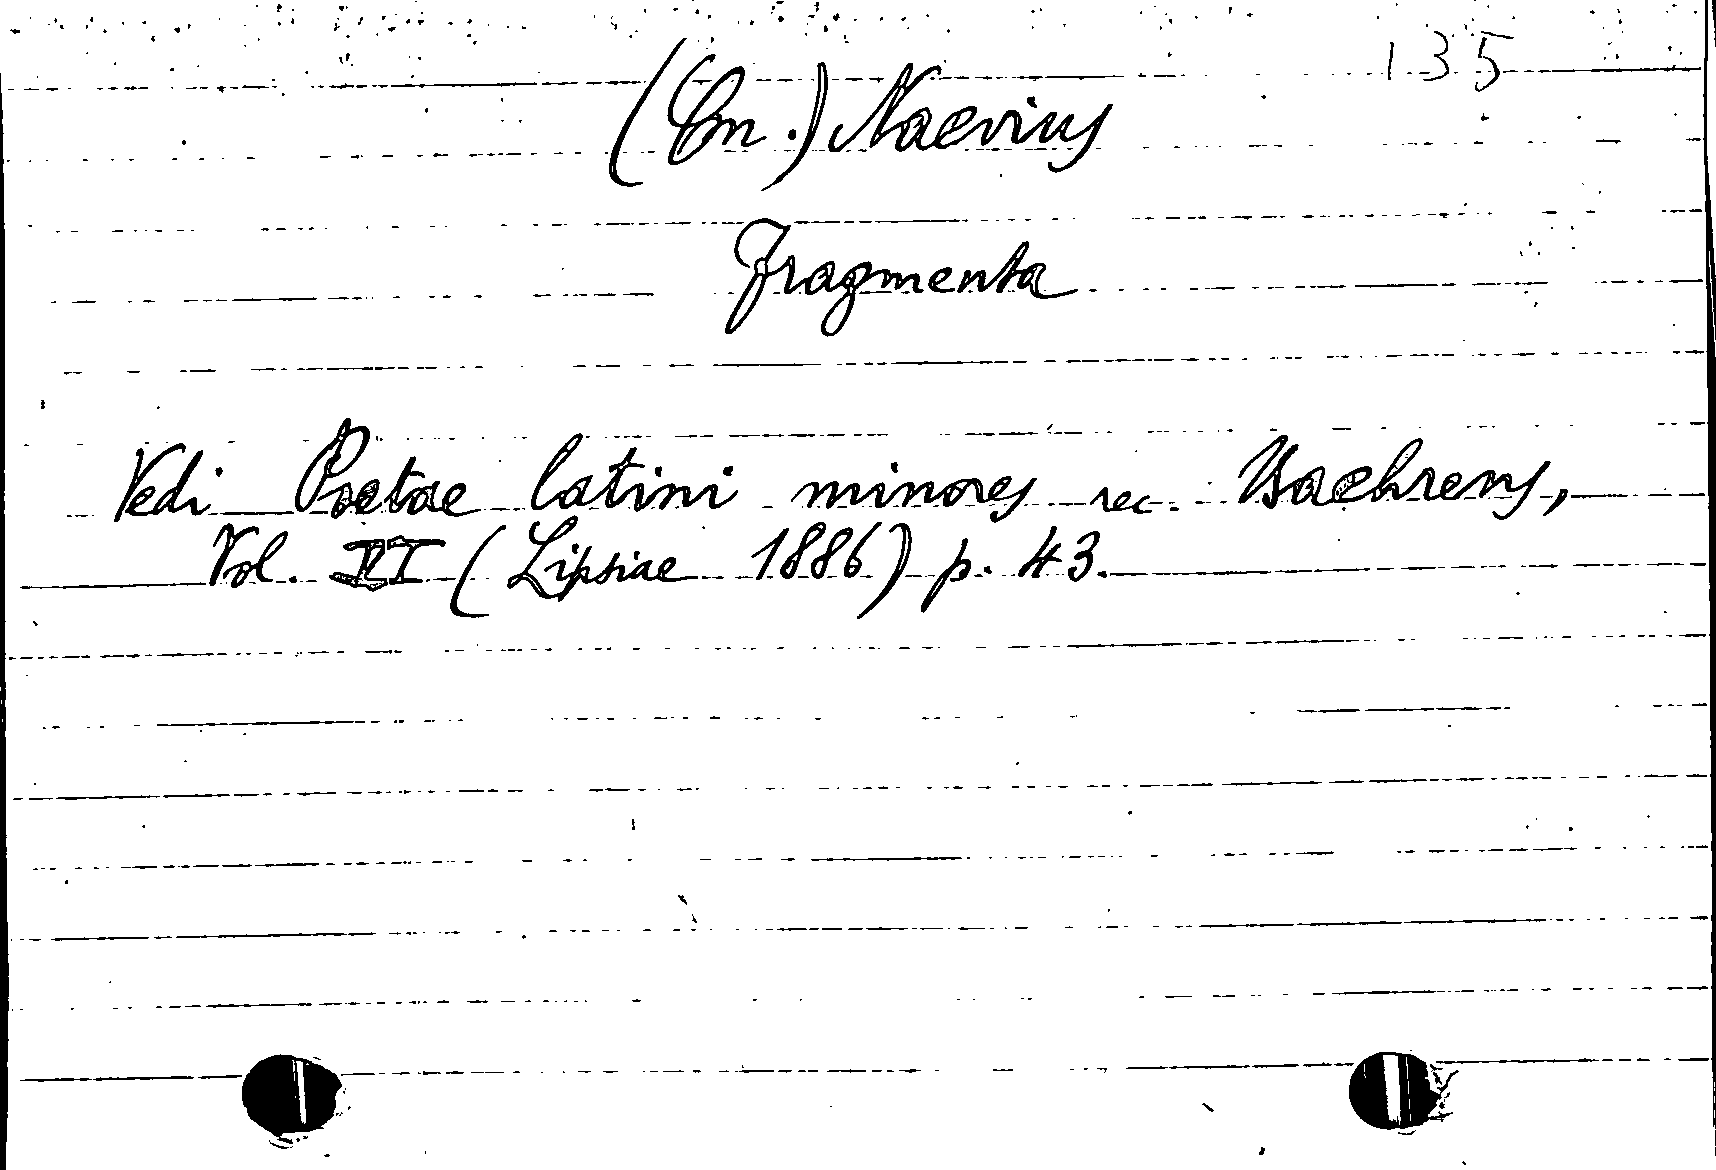 135
(Cn.) Naevius
Fragmenta
Vedi Poetae latini minores rec. Baehrens,
Vol. VI (Lipsiae 1886) p. 43.